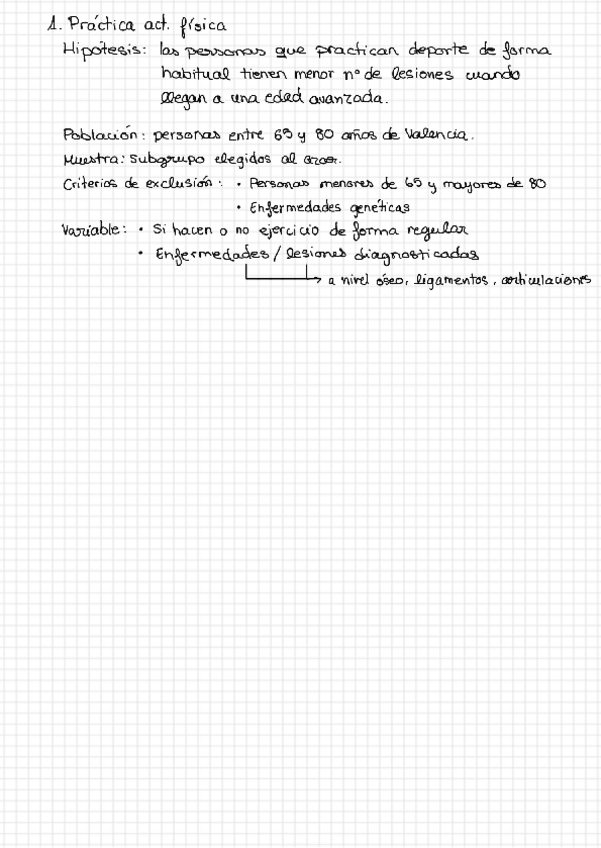 1. Práctica act. física
Hipótesis: las personas que practican deporte de forma
habitual tienen menor nº de lesiones cuando
llegan a una edad avanzada.
Población: personas entre 65 y 80 años de Valencia.
Muestra: Subgrupo elegidos al azar.
Criterios de exclusión: • Personas menores de 65 y mayores de 80
• Enfermedades genéticas
Variable: • Si hacen o no ejercicio de forma regular
• Enfermedades / lesiones diagnosticadas
→ a nivel óseo, ligamentos, articulaciones